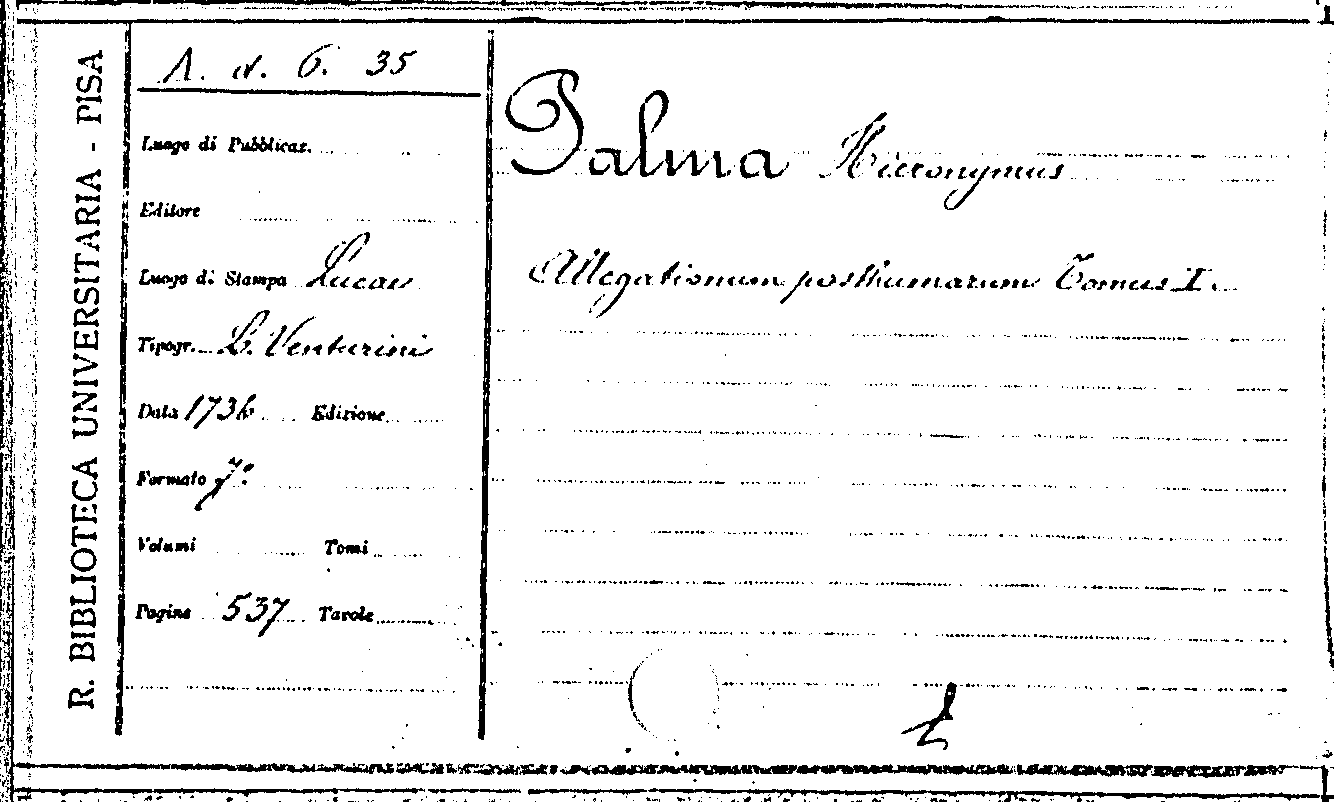 R. BIBLIOTECA UNIVERSITARIA - PISA
A. d. 6. 35
Luogo di Pubblicaz.
Editore
Luogo di Stampa Lucae
Tipogr. L. Venturini
Data 1736 Edizione
Formato
Volumi Tomi
Pagine 537 Tavole
Palma Hieronymus
Allegationum posthumarum Tomus I.